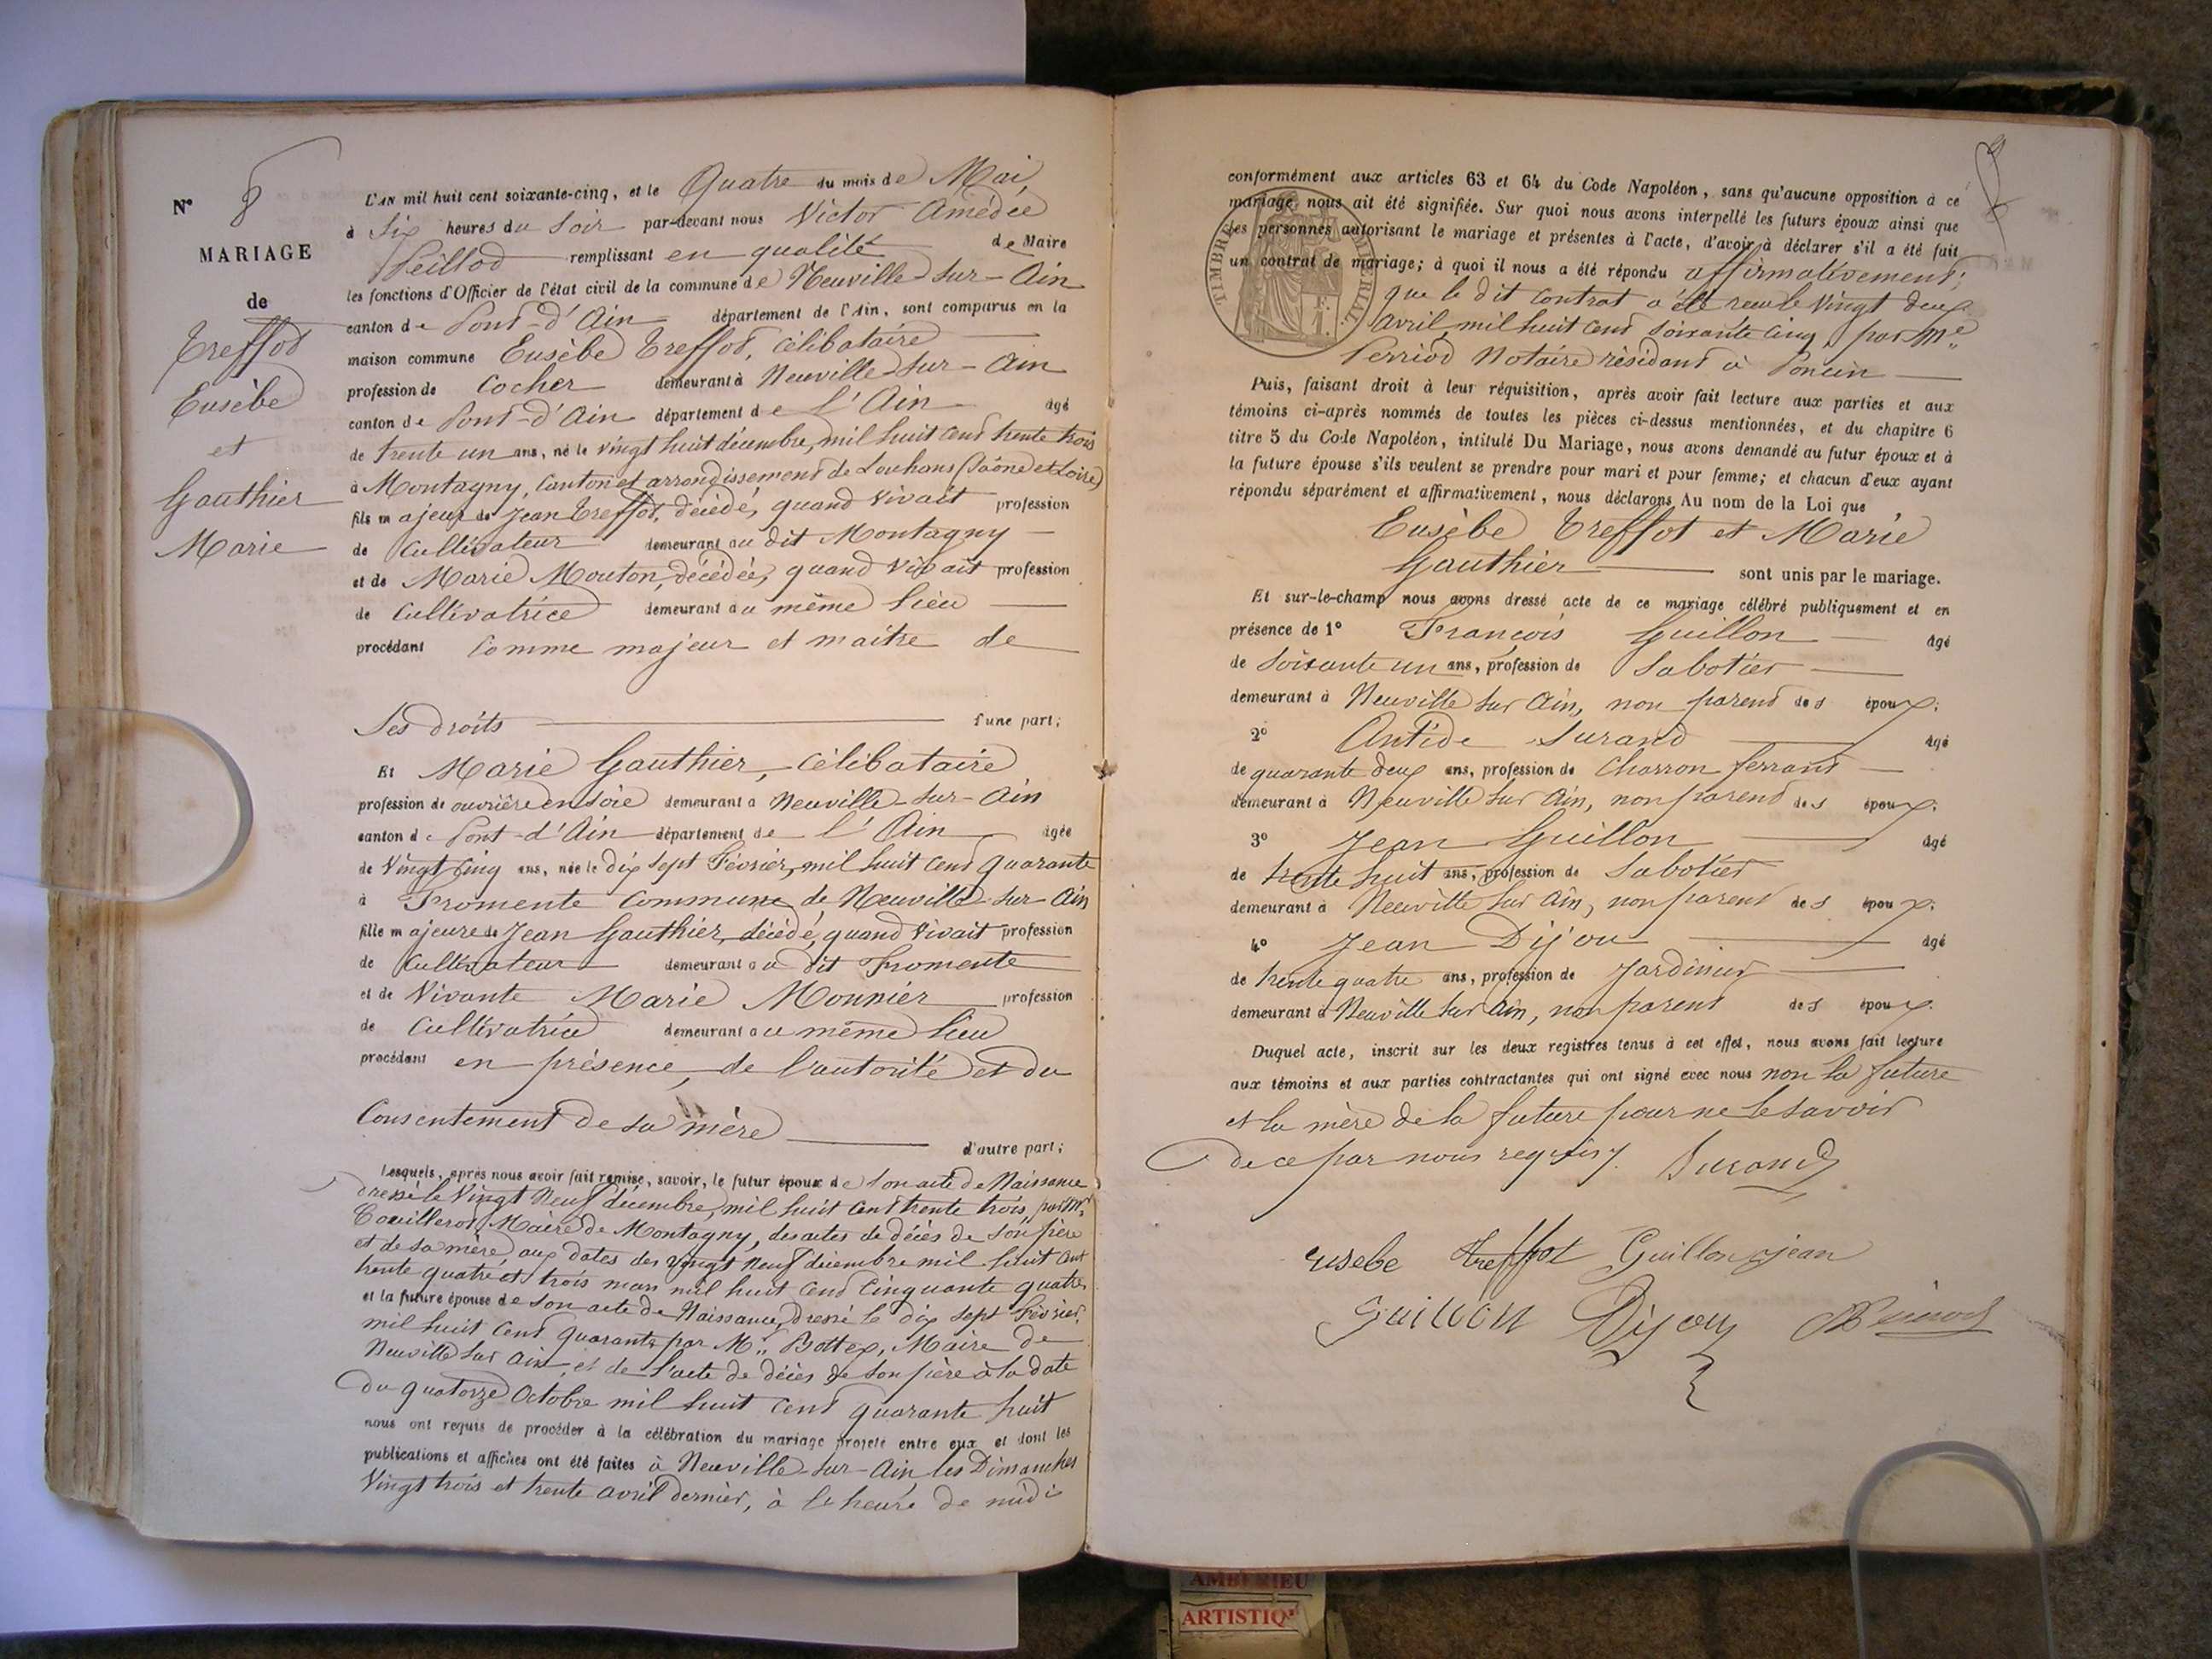 N° 8
MARIAGE
de
Treffot
Eusèbe
et
Gauthier
Marie
L'AN mil huit cent soixante-cinq, et le Quatre du mois de Mai
à Six heures du Soir par-devant nous Victor Amédée
Peillod remplissant en qualité de Maire
les fonctions d'Officier de l'état civil de la commune de Neuville-sur-Ain
canton de Pont-d'Ain département de l'Ain, sont comparus en la
maison commune Eusèbe Treffot, célibataire
profession de Cocher demeurant à Neuville-sur-Ain
canton de Pont-d'Ain département de l'Ain âgé
de trente un ans, né le vingt huit décembre, mil huit cent trente trois
à Montagny, Canton et arrondissement de Louhans (Saône et Loire)
fils majeur de Jean Treffot, décédé, quand vivait profession
de Cultivateur demeurant au dit Montagny
et de Marie Mouton, décédée, quand vivait profession
de Cultivatrice demeurant au même lieu
procédant Comme majeur et maître de
Ses droits d'une part;
Et Marie Gauthier, célibataire
profession de ouvrière en soie demeurant à Neuville-sur-Ain
canton de Pont-d'Ain département de l'Ain âgée
de Vingt cinq ans, née le dix sept Février, mil huit cent quarante
à Fromente Commune de Neuville-sur-Ain
fille majeure de Jean Gauthier, décédé, quand vivait profession
de Cultivateur demeurant au dit Fromente
et de Vivante Marie Monnier profession
de Cultivatrice demeurant au même lieu
procédant en présence, de l'autorité et du
Consentement de sa mère d'autre part;
Lesquels, après nous avoir fait remise, savoir, le futur époux de son acte de Naissance
dressé le Vingt Neuf décembre, mil huit cent trente trois, par Mr
Maire de Montagny, des actes de décès de son père
et de sa mère aux dates des vingt neuf décembre mil huit cent
trente quatre et trois mars mil huit cent cinquante quatre
et la future épouse de son acte de Naissance, dressé le dix sept Février,
mil huit cent quarante par Mr. Bottex, Maire de
Neuville sur Ain, et de l'acte de décès de son père à la date
du quatorze Octobre mil huit cent quarante huit
nous ont requis de procéder à la célébration du mariage projeté entre eux et dont les
publications et affiches ont été faites à Neuville-sur-Ain les Dimanches
Vingt trois et trente avril dernier, à l'heure de midi
conformément aux articles 63 et 64 du Code Napoléon, sans qu'aucune opposition à ce
mariage nous ait été signifiée. Sur quoi nous avons interpellé les futurs époux ainsi que
les personnes autorisant le mariage et présentes à l'acte, d'avoir à déclarer s'il a été fait
un contrat de mariage; à quoi il nous a été répondu affirmativement;
que le dit contrat a été reçu le vingt deux
avril, mil huit cent soixante cinq, par Me
Perriod Notaire résidant à Poncin
TIMBRE IMPÉRIAL
Puis, faisant droit à leur réquisition, après avoir fait lecture aux parties et aux
témoins ci-après nommés de toutes les pièces ci-dessus mentionnées, et du chapitre 6
titre 5 du Code Napoléon, intitulé Du Mariage, nous avons demandé au futur époux et à
la future épouse s'ils veulent se prendre pour mari et pour femme; et chacun d'eux ayant
répondu séparément et affirmativement, nous déclarons Au nom de la Loi que
Eusèbe Treffot et Marie
Gauthier sont unis par le mariage.
Et sur-le-champ nous avons dressé acte de ce mariage célébré publiquement et en
présence de 1° François Guillon âgé
de Soixante un ans, profession de Sabotier
demeurant à Neuville sur Ain, non parent des époux;
2° Antide Durand âgé
de quarante deux ans, profession de Charron ferrant
demeurant à Neuville sur Ain, non parent des époux;
3° Jean Guillon âgé
de trente huit ans, profession de Sabotier
demeurant à Neuville sur Ain, non parent des époux;
4° Jean Dijou âgé
de trente quatre ans, profession de Jardinier
demeurant à Neuville sur Ain, non parent des époux.
Duquel acte, inscrit sur les deux registres tenus à cet effet, nous avons fait lecture
aux témoins et aux parties contractantes qui ont signé avec nous non la future
et la mère de la future pour ne le savoir
de ce par nous requis. Durand
eusebe treffot Guillon jean
Guillon Dijou
AMBERIEU
ARTISTIQ